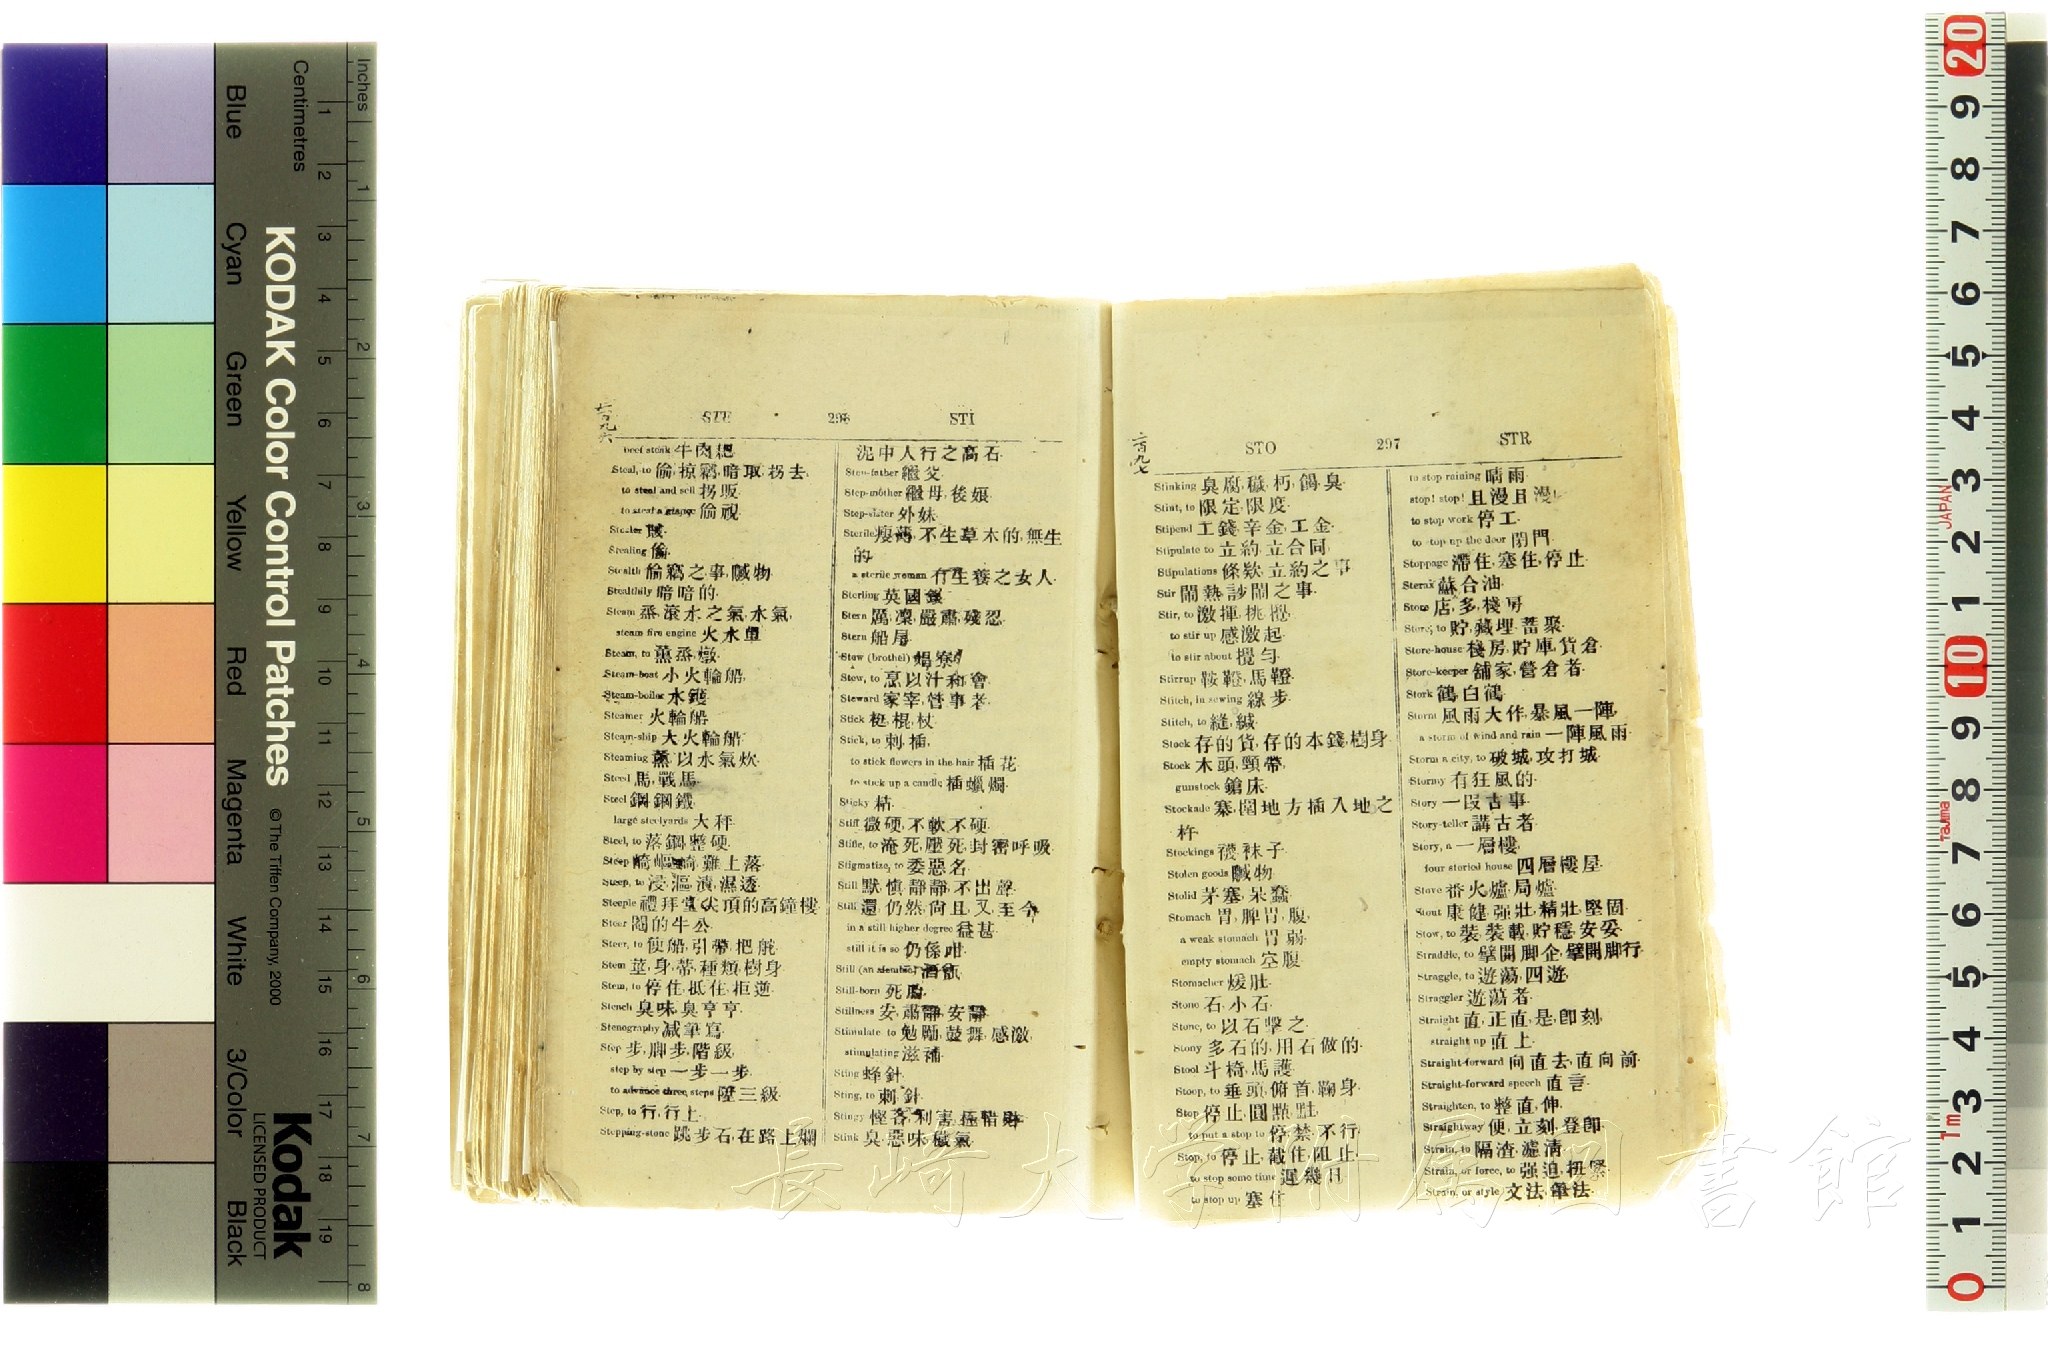 二百九六
STE 296 STI
beef steak 牛肉𢳂
Steal, to 偷,掠竊,暗取,拐去,
to steal and sell 拐販
to steal a glance 偷視
Stealer 賊
Stealing 偷
Stealth 偷竊之事,贓物
Stealthily 暗暗的
Steam 蒸,滾水之氣,水氣,
steam fire engine 火水車
Steam, to 薰,蒸,燉
Steam-boat 小火輪船
Steam-boiler 水鑊
Steamer 火輪船
Steam-ship 大火輪船
Steaming 蒸,以水氣炊
Steed 馬,戰馬
Steel 鋼,鋼鐵
large steelyards 大秤
Steel, to 落鋼,整硬
Steep 難上落
Steep, to 浸,漚,漬,濕透
Steeple 禮拜堂尖頂的高鐘樓
Steer 閹的牛公
Steer, to 使船,引帶,把舵
Stem 莖,身,蒂,種類,樹身
Stem, to 停住,抵住,拒逆
Stench 臭味,臭亨亨
Stenography 减筆寫
Step 步,脚步,階級
step by step 一步一步
to advance three steps 陞三級
Step, to 行,行上
Stepping-stone 跳步石,在路上爛
泥中人行之高石
Step-father 繼父
Step-mother 繼母,後娘
Step-sister 外妹
Sterile 瘦薄,不生草木的,無生
的
a sterile woman 冇生養之女人
Sterling 英國銀
Stern 厲,凜,嚴肅,殘忍
Stern 船尾
Stew (brothel) 娼寮
Stew, to 烹以汁和會
Steward 家宰,管事者
Stick 梃,棍,杖
Stick, to 刺,插,
to stick flowers in the hair 插花
to stick up a candle 插蠟燭
Sticky 粘
Stiff 微硬,不軟不硬
Stifle, to 淹死,壓死,封密呼吸
Stigmatize, to 委惡名
Still 默,慎靜靜,不出聲
Still 還,仍然,尙且,又,至今
in a still higher degree 益甚
still it is so 仍係咁
Still (an alembic) 酒甑
Still-born 死胎
Stillness 安,肅靜,安靜
Stimulate to 勉勵,鼓舞,感激
stimulating 滋補
Sting 蜂針
Sting, to 刺,針
Stingy 慳吝,利害,極惜財
Stink 臭,惡味,穢氣
二百九七
STO 297 STR
Stinking 臭,腐,穢,朽,餲,臭
Stint, to 限定,限度
Stipend 工錢,辛金,工金
Stipulate to 立約,立合同
Stipulations 條欵,立約之事
Stir 鬧熱,訬鬧之事
Stir, to 激揮,挑攪
to stir up 感激起
to stir about 攪勻
Stirrup 鞍鐙,馬鐙
Stitch, in sewing 線步
Stitch, to 縫,緘
Stock 存的貨,存的本錢,樹身
Stock 木頭,頸帶,
gunstock 鎗床
Stockade 寨,圍地方插入地之
杵
Stockings 襪,袜子
Stolen goods 贓物
Stolid 茅塞,呆蠢
Stomach 胃,脾胃,腹
a weak stomach 胃弱
empty stomach 空腹
Stomacher 煖肚
Stone 石,小石
Stone, to 以石擊之
Stony 多石的,用石做的
Stool 斗椅,馬護
Stoop, to 垂頭,俯首,鞠身
Stop 停止,圓點,點
to put a stop to 停,禁,不行
Stop, to 停止,截住,阻止
to stop some time 遲幾日
to stop up 塞住
to stop raining 晴雨
stop! stop! 且漫且漫
to stop work 停工
to stop up the door 閉門
Stoppage 滯住,塞住,停止
Storax 蘇合油
Store 店,多,棧房
Store, to 貯,藏埋,蓄聚
Store-house 棧房,貯庫,貨倉
Store-keeper 舖家,營倉者
Stork 鶴,白鶴
Storm 風雨大作,暴風一陣
a storm of wind and rain 一陣風雨
Storm a city, to 破城,攻打城
Stormy 有狂風的
Story 一段古事
Story-teller 講古者
Story, a 一層樓
four storied house 四層樓屋
Stove 番火爐,局爐
Stout 康健,强壯,精壯,堅固
Stow, to 裝,裝載,貯穩,安妥
Straddle, to 擘開脚企,擘開脚行
Straggle, to 遊蕩,四遊
Straggler 遊蕩者
Straight 直,正直,是,卽刻
straight up 直上
Straight-forward 向直去,直向前
Straight-forward speech 直言
Straighten, to 整直,伸
Straightway 便,立刻,登卽
Strain, to 隔渣,濾清
Strain, or force, to 强迫,扭緊
Strain, or style 文法,筆法
長崎大学附属図書館
Inches
Centimetres
KODAK Color Control Patches © The Tiffen Company, 2000
Kodak
LICENSED PRODUCT
Blue Cyan Green Yellow Red Magenta White 3/Color Black
1 2 3 4 5 6 7 8 9 10 11 12 13 14 15 16 17 18 19
1 2 3 4 5 6 7 8
20 9 8 7 6 5 4 3 2 1 10 9 8 7 6 5 4 3 2 1 0
JAPAN
Tajima
1m